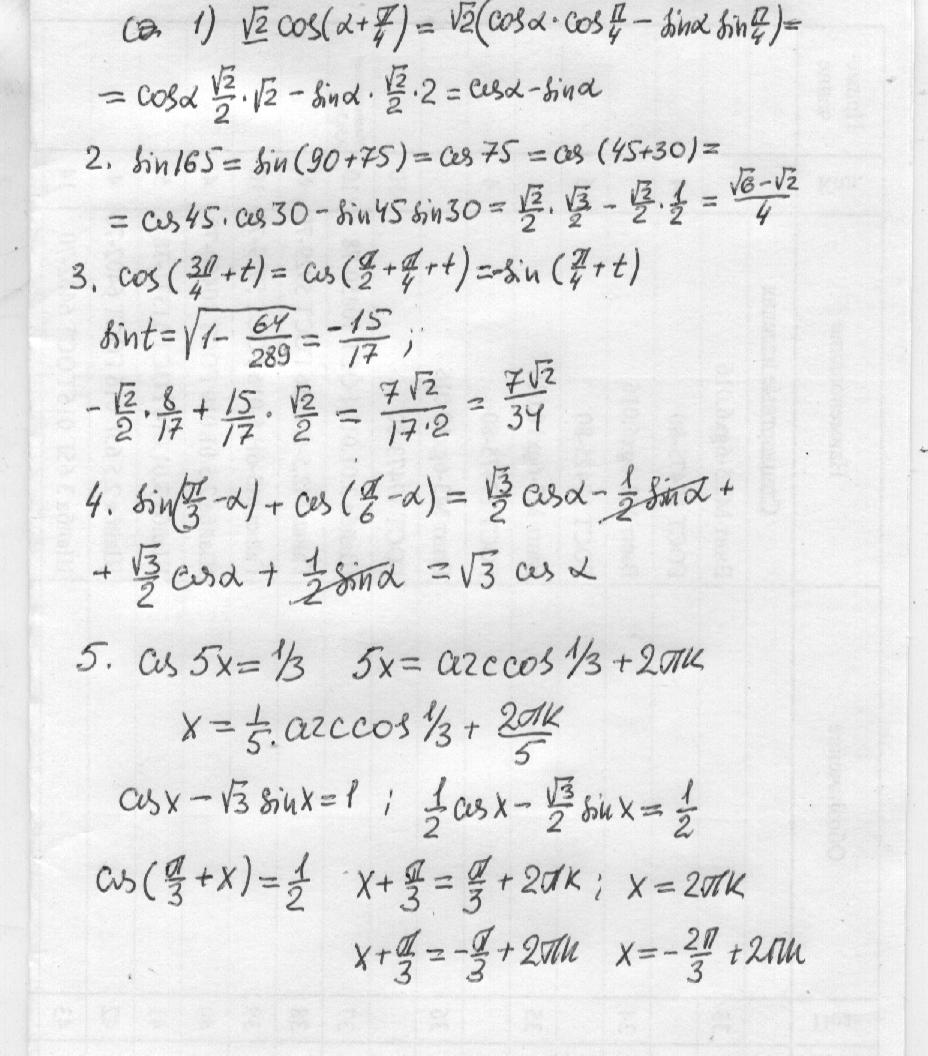 1) √2 cos(α+π/4) = √2(cosα·cos π/4 − sinα sin π/4)=
= cosα √2/2·√2 − sinα·√2/2·2 = cosα−sinα
2. sin165= sin(90+75)= cos75 = cos (45+30)=
= cos45·cos30 − sin45 sin30 = √2/2·√3/2 − √2/2·1/2 = (√6−√2)/4
3. cos(3π/4+t)= cos(π/2+π/4+t)=-sin(π/4+t)
sint=√(1−64/289)= −15/17 ;
−√2/2·8/17 + 15/17·√2/2 = 7√2/(17·2) = 7√2/34
4. sin(π/3−α)+ cos(π/6−α)= √3/2 cosα−1/2 sinα +
+ √3/2 cosα + 1/2 sinα =√3 cosα
5. cos 5x=1/3 5x= arccos 1/3+2πk
x= 1/5·arccos 1/3+ 2πk/5
cosx−√3 sinx=1 ; 1/2 cosx−√3/2 sinx= 1/2
cos(π/3+x)= 1/2 x+π/3=π/3+2πk; x=2πk
x+π/3=−π/3+2πk x=−2π/3+2πk